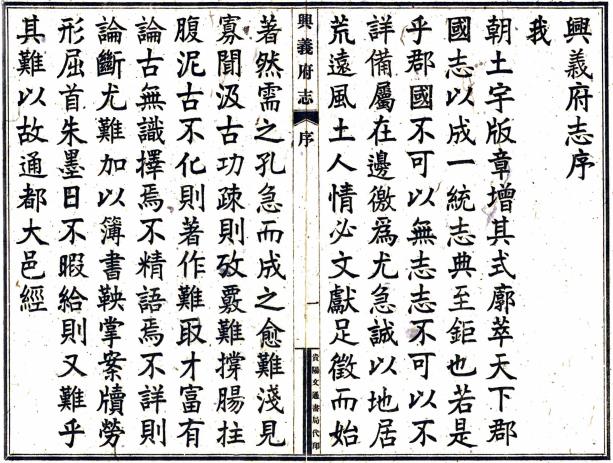 興義府志序
我
朝土宇版章增其式廓萃天下郡
國志以成一統志典至鉅也若是
乎郡國不可以無志志不可以不
詳備屬在邊徼爲尤急誠以地居
荒遠風土人情必文獻足徵而始
興義府志
序
一
貴陽文通書局代印
著然需之孔急而成之愈難淺見
寡聞汲古功疎則攷覈難撐腸拄
腹泥古不化則著作難取才富有
論古無識擇焉不精語焉不詳則
論斷尤難加以簿書鞅掌案牘勞
形屈首朱墨日不暇給則又難乎
其難以故通都大邑經